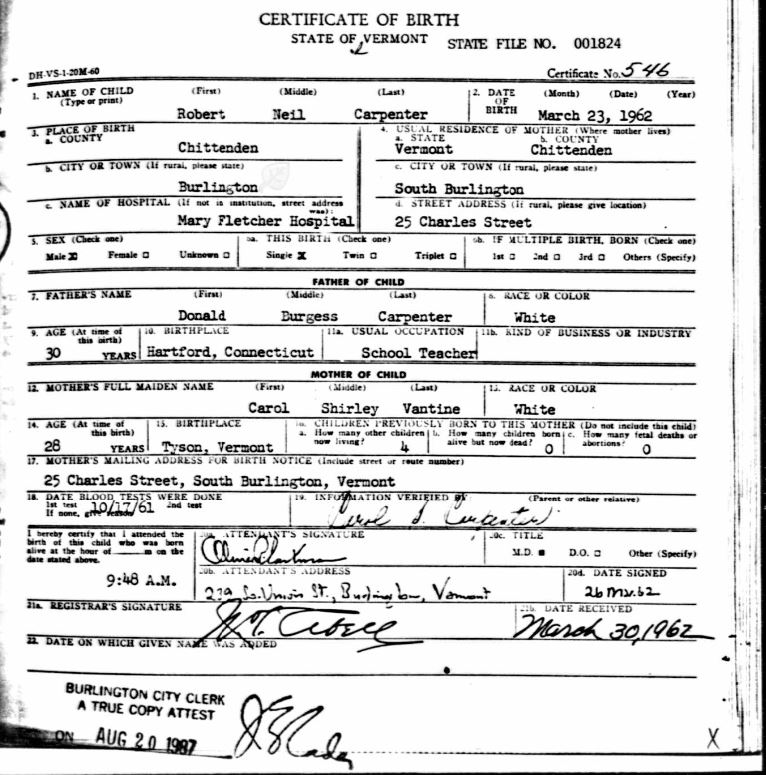 CERTIFICATE OF BIRTH
STATE OF VERMONT STATE FILE NO. 001824
DH-VS-1-20M-60 Certificate No. 546
1. NAME OF CHILD (First) (Middle) (Last) 2. DATE (Month) (Date) (Year)
(Type or print) OF
Robert Neil Carpenter BIRTH March 23, 1962
3. PLACE OF BIRTH 4. USUAL RESIDENCE OF MOTHER (Where mother lives)
a. COUNTY a. STATE b. COUNTY
Chittenden Vermont Chittenden
b. CITY OR TOWN (If rural, please state) c. CITY OR TOWN (If rural, please state)
Burlington South Burlington
c. NAME OF HOSPITAL (If not in institution, street address was): d. STREET ADDRESS (If rural, please give location)
Mary Fletcher Hospital 25 Charles Street
5. SEX (Check one) 6a. THIS BIRTH (Check one) 6b. IF MULTIPLE BIRTH, BORN (Check one)
Male X Female □ Unknown □ Single X Twin □ Triplet □ 1st □ 2nd □ 3rd □ Others (Specify)
FATHER OF CHILD
7. FATHER'S NAME (First) (Middle) (Last) 8. RACE OR COLOR
Donald Burgess Carpenter White
9. AGE (At time of 10. BIRTHPLACE 11a. USUAL OCCUPATION 11b. KIND OF BUSINESS OR INDUSTRY
this birth)
30 YEARS Hartford, Connecticut School Teacher
MOTHER OF CHILD
12. MOTHER'S FULL MAIDEN NAME (First) (Middle) (Last) 13. RACE OR COLOR
Carol Shirley Vantine White
14. AGE (At time of 15. BIRTHPLACE 16. CHILDREN PREVIOUSLY BORN TO THIS MOTHER (Do not include this child)
this birth) a. How many other children b. How many children born c. How many fetal deaths or
now living? alive but now dead? abortions?
28 YEARS Tyson, Vermont 4 0 0
17. MOTHER'S MAILING ADDRESS FOR BIRTH NOTICE (Include street or route number)
25 Charles Street, South Burlington, Vermont
18. DATE BLOOD TESTS WERE DONE 19. INFORMATION VERIFIED BY (Parent or other relative)
1st test 10/17/61 2nd test Carol S. Carpenter
If none, give reason
I hereby certify that I attended the 20a. ATTENDANT'S SIGNATURE 20c. TITLE
birth of this child who was born
alive at the hour of ____m on the M.D. ■ D.O. □ Other (Specify)
date stated above. 20b. ATTENDANT'S ADDRESS 20d. DATE SIGNED
9:48 A.M. 239 So. Union St., Burlington, Vermont 26 62
21a. REGISTRAR'S SIGNATURE 21b. DATE RECEIVED
March 30, 1962
22. DATE ON WHICH GIVEN NAME WAS ADDED
BURLINGTON CITY CLERK
A TRUE COPY ATTEST
ON AUG 20 1987
X